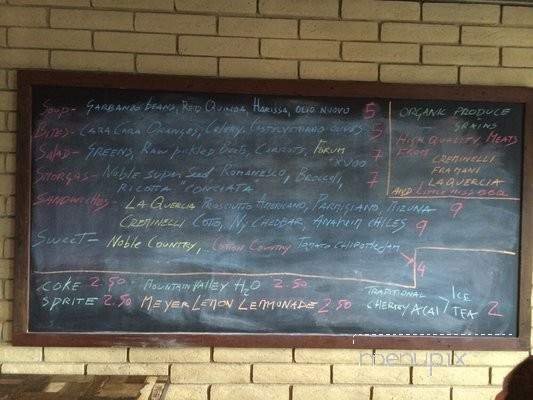 SOUP - GARBANZO BEANS, RED QUINOA, HARISSA, OLIO NUOVO 5
BITES - CARA CARA ORANGES, CELERY, CASTELVETRANO OLIVES 5
SALAD - GREENS, RAW PICKLED BEETS, CARROTS, FORUM 7
SMORGAS - NOBLE SUPER SEED ROMANESCO, BROCCOLI, 7
RICOTTA "CONCIATA"
SANDWICHES - LA QUERCIA PROSCIUTTO AMERICANO, PARMIGIANO, MIZUNA 9
CREMINELLI COTTO, NY CHEDDAR, ANAHEIM CHILES 9
SWEET - NOBLE COUNTRY, COUNTRY TOMATO CHIPOTLE JAM
4
ORGANIC PRODUCE
GRAINS
HIGH QUALITY MEATS
FROM CREMINELLI
FRAMANI
LAQUERCIA
AND
COKE 2.50 - MOUNTAIN VALLEY H2O 2.50
SPRITE 2.50 MEYER LEMON LEMONADE 2.50
TRADITIONAL ICE
CHERRY ACAI TEA 2
menupix